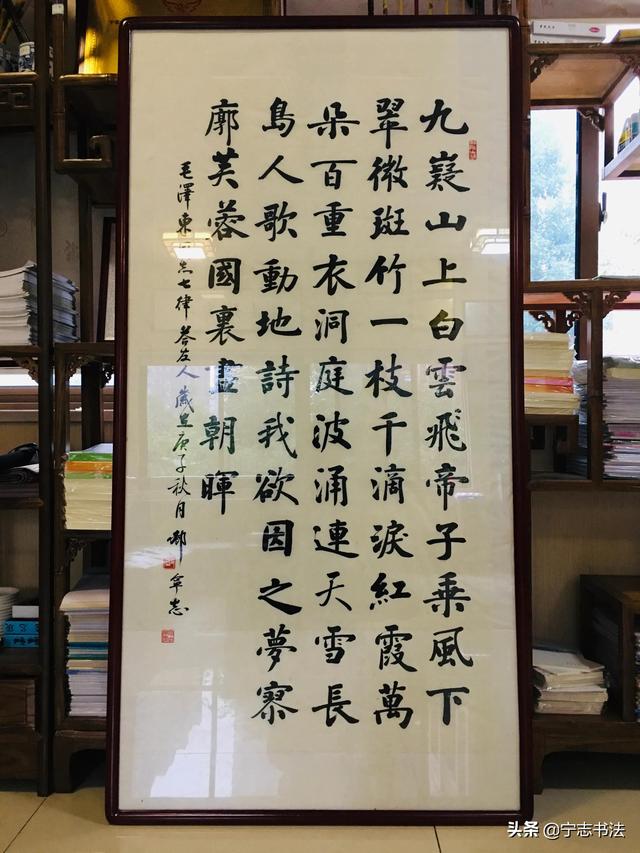 九嶷山上白雲飛帝子乘風下
翠微斑竹一枝千滴淚紅霞萬
朵百重衣洞庭波涌連天雪長
島人歌動地詩我欲因之夢寥
廓芙蓉國裏盡朝暉
毛澤東同志七律答友人歲在庚子秋月寧志
头条 @宁志书法